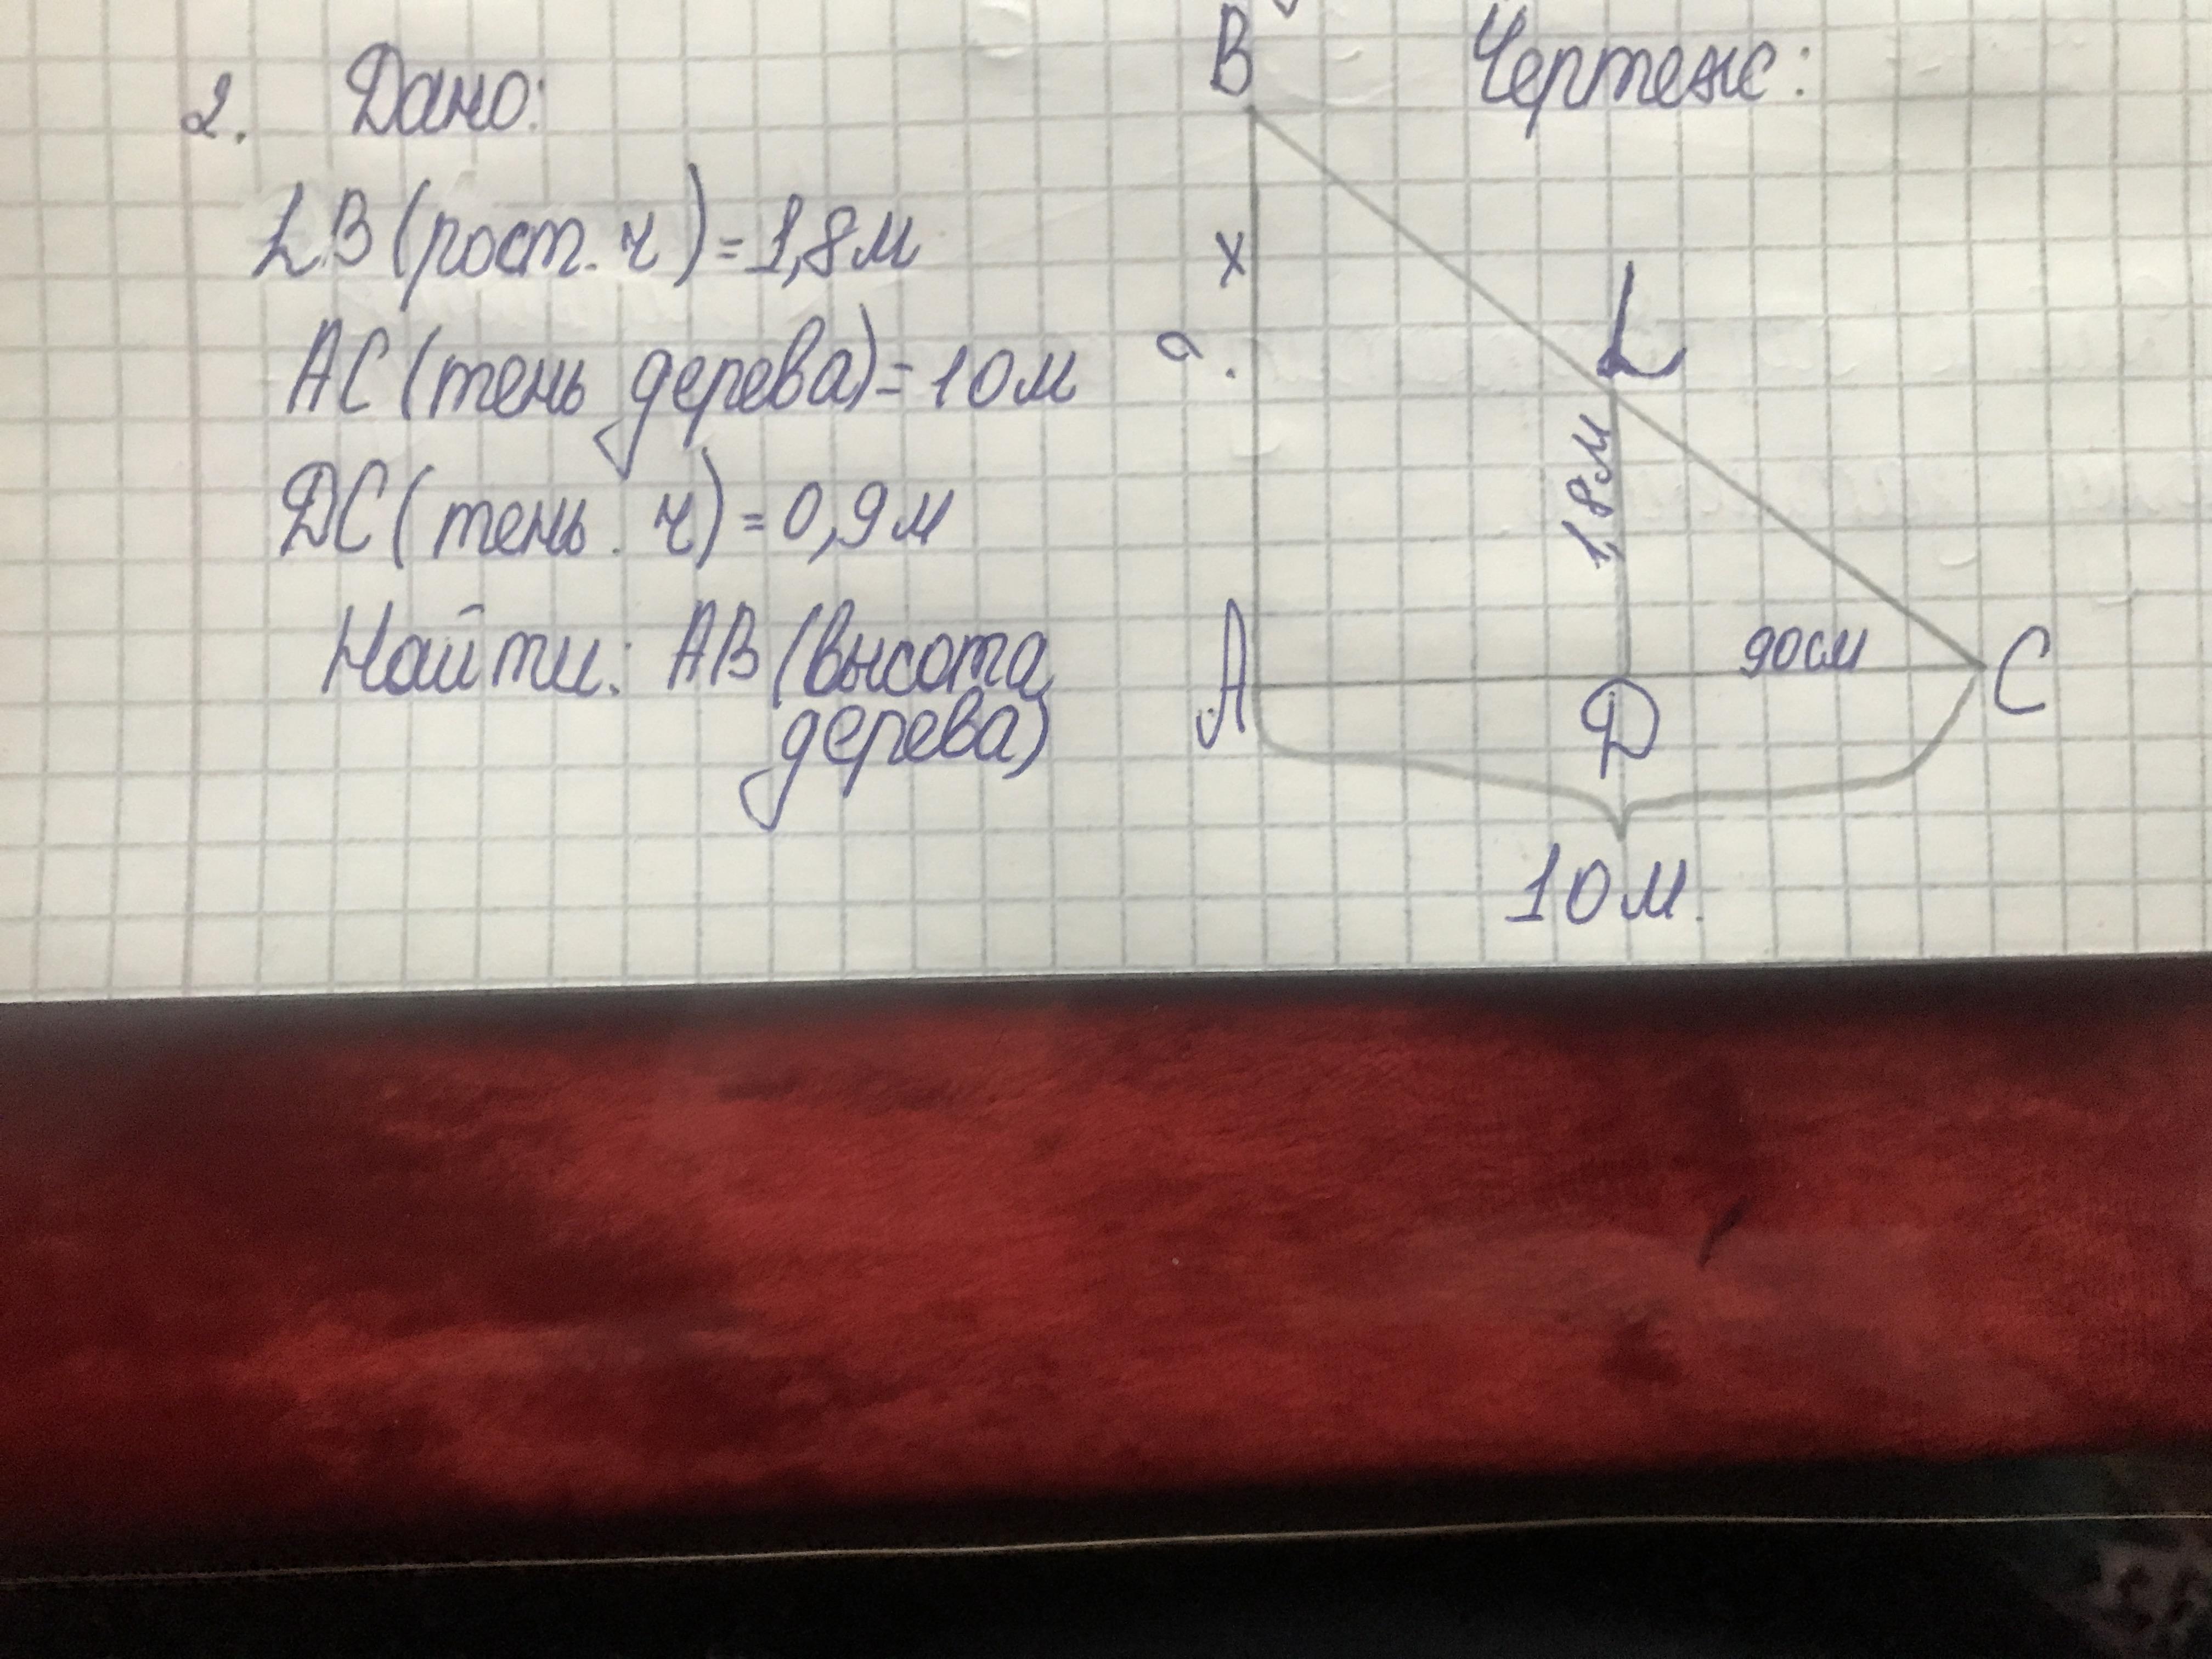 2. Дано:
LВ (рост. ч) = 1,8 м
АС (тень дерева) = 10 м
DС (тень. ч) = 0,9 м
Найти: АВ (высота
дерева)
Чертеж:
В
х
?
L
1,8 м
А
D
90 см
С
10 м.